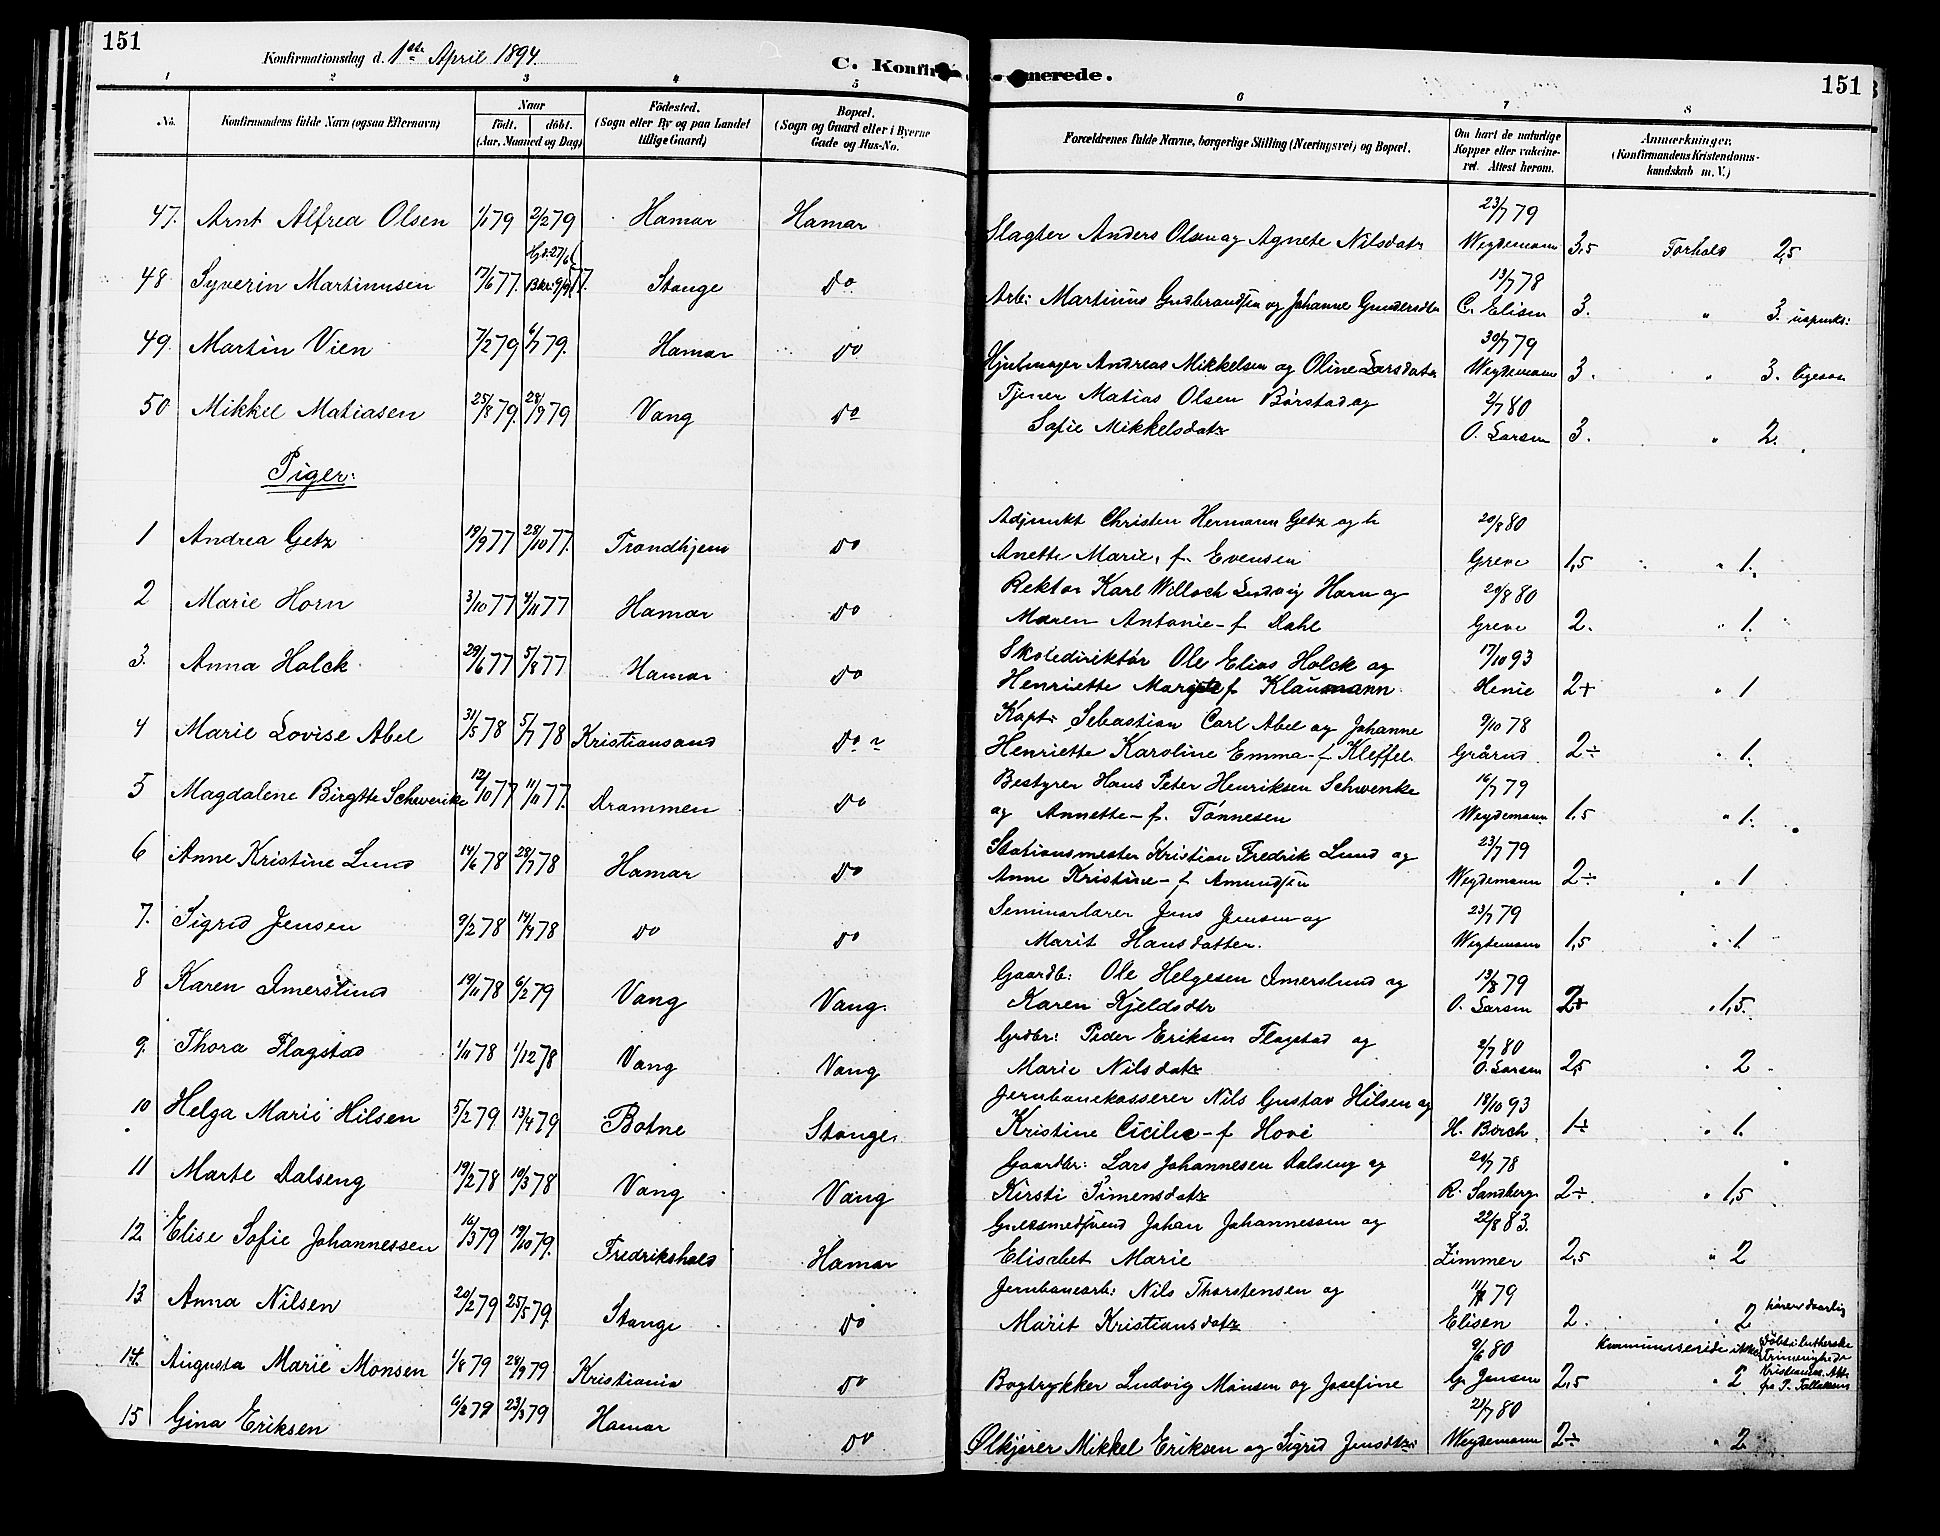 151
Konfirmationsdag d. 1ste April 1894.
C. Konfir
merede.
151
1 2 3 4 5 6 7 8
No.
Konfirmandens fulde Navn (ogsaa Efternavn)
Naar
födt. döbt.
(Aar, Maaned og Dag)
Födested.
(Sogn eller By og paa Landet
tillige Gaard)
Bopæl.
(Sogn og Gaard eller i Byerne
Gade og Hus-No.
Forældrenes fulde Navne, borgerlige Stilling (Næringsvei) og Bopæl.
Om havt de naturlige
Kopper eller vakcine-
ret. Attest herom.
Anmærkninger.
(Konfirmandens Kristendoms-
kundskab m. V.)
47. Arnt Alfred Olsen 1/1 79 2/2 79 Hamar Hamar Slagter Anders Olsen og Agnete Nilsdatr 23/7 79 Weydemann 3,5 Forhold 2,5
48 Syverin Martinusen 17/6 77. Hjd. 27/6 Bkr. 9/9 77. Stange Do Arb: Martinus Gudbrandsen og Johanne Gundersdtr 13/7 78 C. Elisen 3. " 3.
49. Martin Vien 7/2 79 6/7 79. Hamar Do Hjulmager Andreas Mikkelsen og Oline Larsdatr 30/7 79 Weydemann 3. " 3.
50 Mikkel Matiasen 25/8 79. 28/9 79 Vang Do Tjener Matias Olsen Börstad og
Sofie Mikkelsdatr 2/7 80 O. Larsen 3. " 2.
Piger:
1 Andrea Getz 19/9 77 28/10 77. Trondhjem Do Adjunkt Christen Hermann Getz og h
Anette Marie, f. Evensen 20/8 80 Greve 1,5 " 1.
2 Marie Horn 3/10 77 4/11 77 Hamar Do Rektor Karl Willoch Ludvig Horn og
Maren Antonie - f. Dahl 20/8 80 Greve 2. " 1.
3. Anna Holck 29/6 77 5/8 77 Hamar Do Skoledirektör Ole Elias Holck og
Henriette Margrete f Klaumann 17/10 93 Henie 2+ " 1
4 Marie Lovise Abel 31/5 78 5/7 78 Kristiansand Do Kapt. Sebastian Carl Abel og Johanne
Henriette Karoline Emma - f Kleffel. 9/10 78 Grårud 2÷ " 1.
5 Magdalene Birgitte Schwenke 12/10 77 11/11 77. Drammen Do Bestyrer Hans Peter Henriksen Schwenke
og Annette - f. Tönnesen 16/7 79 Weydemann 1,5 " 1.
6 Anne Kristine Lund 14/6 78 28/7 78 Hamar Do Stationsmester Kristian Fredrik Lund og
Anne Kristine - f Amundsen 23/7 79 Weydemann 2÷ " 1
7. Sigrid Jensen 9/2 78 14/4 78 Do Do Seminarlærer Jens Jensen og
Marit Hansdatter. 23/7 79 Weydemann 1,5 " 1.
8 Karen Imerslund 19/11 78 6/2 79 Vang Vang. Gaardb: Ole Helgesen Imerslund og
Karen Kjeldsdtr 13/8 79 O. Larsen 2+ " 1,5.
9. Thora Flagstad 1/11 78 1/12 78 Vang Vang Grdbr: Peder Eriksen Flagstad og
Marie Nilsdatr 2/7 80 O. Larsen 2,5 " 2
10 Helga Marie Hilsen 5/2 79 13/4 79 Botne Stange Jernbanekasserer Nils Gustav Hilsen og
Kristine Cicilie - f Hovi 18/10 93 H. Borch 1÷ " 1.
11 Marte Dalseng 19/2 78 10/3 78 Vang Vang Gaardbr: Lars Johannesen Dalseng og
Kirsti Simensdatr 20/7 78 R. Sandberg 2÷ " 1,5
12 Elise Sofie Johannessen 16/3 79 19/10 79. Fredrikshald Hamar Johan Johannessen og
Elisabet Marie 22/8 83. Zimmer 2,5 " 2
13. Anna Nilsen 20/2 79 25/5 79. Stange Do Jernbanearb: Nils Thorstensen og
Marit Kristiansdatr 79 Elisen 2. " 2 hörer daarlig
14. Augusta Marie Monsen 1/8 79 28/9 79 Kristiania Do Bogtrykker Ludvig Monsen og Josefine 9/6 80 G. Jensen 2,5 " 2
kommunicerede ikke Döbt i lutherske
Kristiania. Att.
15 Gina Eriksen 6/2 79 23/3 79 Hamar Do Ölkjörer Mikkel Eriksen og Sigrid Jensdtr 21/7 80 Weydemann 2÷ " 2